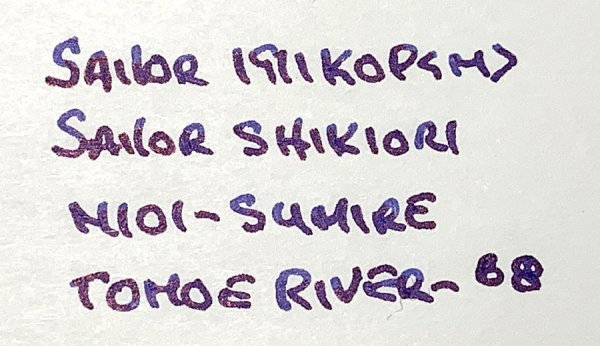 SAILOR 1911KOP<M>
SAILOR SHIKIORI
NIOI-SUMIRE
TOMOE RIVER- 68